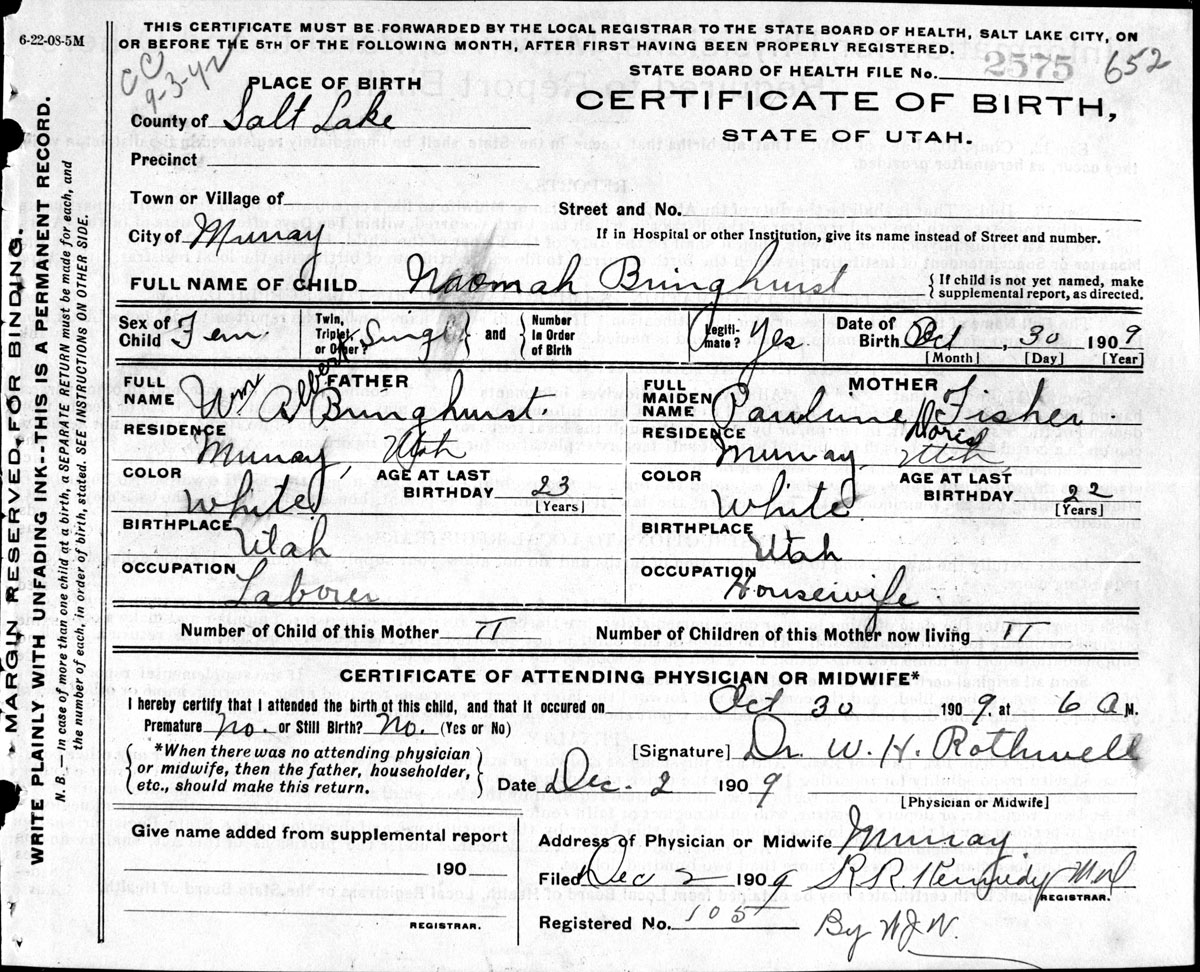 6-22-08-5M
THIS CERTIFICATE MUST BE FORWARDED BY THE LOCAL REGISTRAR TO THE STATE BOARD OF HEALTH, SALT LAKE CITY, ON
OR BEFORE THE 5TH OF THE FOLLOWING MONTH, AFTER FIRST HAVING BEEN PROPERLY REGISTERED.
CC
9-3-42
STATE BOARD OF HEALTH FILE No. 2575 652
PLACE OF BIRTH
CERTIFICATE OF BIRTH,
STATE OF UTAH.
County of Salt Lake
Precinct
Town or Village of
Street and No.
City of Murray
If in Hospital or other Institution, give its name instead of Street and number.
FULL NAME OF CHILD Naomah Bringhurst
{ If child is not yet named, make
supplemental report, as directed.
Sex of Child Fem
Twin, Triplet, or Other? Singl } and { Number in Order of Birth
Legitimate? Yes
Date of Birth Oct 30 1909
[Month] [Day] [Year]
FATHER
FULL NAME Wm Albert Bringhurst
RESIDENCE Murray, Utah
COLOR White
AGE AT LAST BIRTHDAY 23 [Years]
BIRTHPLACE Utah
OCCUPATION Laborer
MOTHER
FULL MAIDEN NAME Pauline Doris Fisher
RESIDENCE Murray, Utah,
COLOR White
AGE AT LAST BIRTHDAY 22 [Years]
BIRTHPLACE Utah
OCCUPATION Housewife.
Number of Child of this Mother II
Number of Children of this Mother now living II
CERTIFICATE OF ATTENDING PHYSICIAN OR MIDWIFE*
I hereby certify that I attended the birth of this child, and that it occured on Oct 30 1909, at 6 a M.
Premature No. or Still Birth? No. (Yes or No)
{ *When there was no attending physician
or midwife, then the father, householder,
etc., should make this return. }
[Signature] Dr. W. H. Rothwell
Date Dec. 2 1909
[Physician or Midwife]
Give name added from supplemental report
190
REGISTRAR.
Address of Physician or Midwife Murray
Filed Dec 2 1909 R R Kennedy MD
REGISTRAR.
Registered No. 105 By W.J.W.
MARGIN RESERVED FOR BINDING.
WRITE PLAINLY WITH UNFADING INK--THIS IS A PERMANENT RECORD.
N. B.—In case of more than one child at a birth, a SEPARATE RETURN must be made for each, and
the number of each, in order of birth, stated. SEE INSTRUCTIONS ON OTHER SIDE.